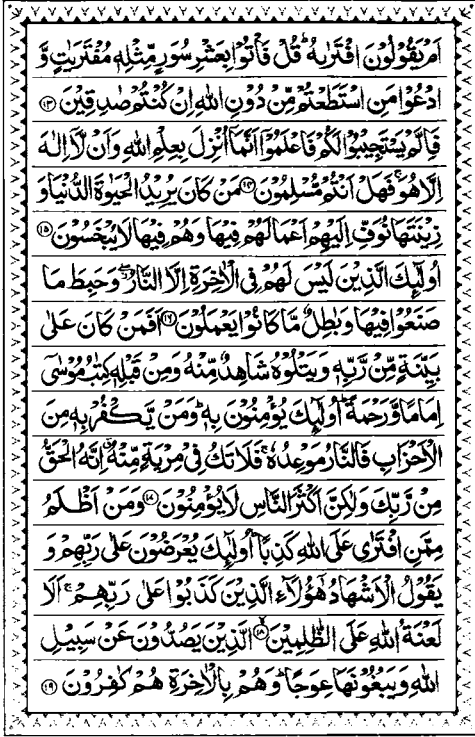 اَمْ يَقُوْلُوْنَ افْتَرٰىهُ ؕ قُلْ فَاْتُوْا بِعَشْرِ سُوَرٍ مِّثْلِهٖ مُفْتَرَيٰتٍ وَّ
ادْعُوْا مَنِ اسْتَطَعْتُمْ مِّنْ دُوْنِ اللهِ اِنْ كُنْتُمْ صٰدِقِيْنَ ۝۱۳
فَاِلَّمْ يَسْتَجِيْبُوْا لَكُمْ فَاعْلَمُوْۤا اَنَّمَاۤ اُنْزِلَ بِعِلْمِ اللهِ وَاَنْ لَّاۤ اِلٰهَ
اِلَّا هُوَ ۚ فَهَلْ اَنْتُمْ مُّسْلِمُوْنَ ۝۱۴ مَنْ كَانَ يُرِيْدُ الْحَيٰوةَ الدُّنْيَا وَ
زِيْنَتَهَا نُوَفِّ اِلَيْهِمْ اَعْمَالَهُمْ فِيْهَا وَهُمْ فِيْهَا لَا يُبْخَسُوْنَ ۝۱۵
اُولٰٓئِكَ الَّذِيْنَ لَيْسَ لَهُمْ فِى الْاٰخِرَةِ اِلَّا النَّارُ ۖ وَحَبِطَ مَا
صَنَعُوْا فِيْهَا وَبٰطِلٌ مَّا كَانُوْا يَعْمَلُوْنَ ۝۱۶ اَفَمَنْ كَانَ عَلٰى
بَيِّنَةٍ مِّنْ رَّبِّهٖ وَيَتْلُوْهُ شَاهِدٌ مِّنْهُ وَمِنْ قَبْلِهٖ كِتٰبُ مُوْسٰٓى
اِمَامًا وَّرَحْمَةً ؕ اُولٰٓئِكَ يُؤْمِنُوْنَ بِهٖ ؕ وَمَنْ يَّكْفُرْ بِهٖ مِنَ
الْاَحْزَابِ فَالنَّارُ مَوْعِدُهٗ ۚ فَلَا تَكُ فِىْ مِرْيَةٍ مِّنْهُ ۗ اِنَّهُ الْحَقُّ
مِنْ رَّبِّكَ وَلٰكِنَّ اَكْثَرَ النَّاسِ لَا يُؤْمِنُوْنَ ۝۱۷ وَمَنْ اَظْلَمُ
مِمَّنِ افْتَرٰى عَلَى اللهِ كَذِبًا ؕ اُولٰٓئِكَ يُعْرَضُوْنَ عَلٰى رَبِّهِمْ وَ
يَقُوْلُ الْاَشْهَادُ هٰٓؤُلَآءِ الَّذِيْنَ كَذَبُوْا عَلٰى رَبِّهِمْ ۚ اَلَا
لَعْنَةُ اللهِ عَلَى الظّٰلِمِيْنَ ۝۱۸ الَّذِيْنَ يَصُدُّوْنَ عَنْ سَبِيْلِ
اللهِ وَيَبْغُوْنَهَا عِوَجًا ؕ وَهُمْ بِالْاٰخِرَةِ هُمْ كٰفِرُوْنَ ۝۱۹